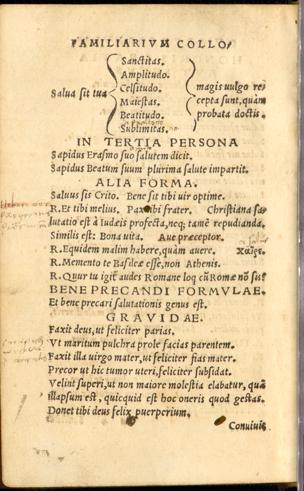 FAMILIARIVM COLLO/
Sanctitas.
Amplitudo.
Salua sit tua Celsitudo. magis uulgo re/
Maiestas. cepta sunt, quàm
Beatitudo. probata doctis.
Sublimitas.
IN TERTIA PERSONA
Sapidus Erasmo suo salutem dicit.
Sapidus Beatum suum plurima salute impartit.
ALIA FORMA.
Saluus sis Crito. Bene sit tibi uir optime.
R. Et tibi melius. Pax tibi frater. Christiana sa/
lutatio est à Iudæis profecta, neq; tamē repudianda.
Similis est: Bona uita. Aue præceptor.
R. Equidem malim habere, quàm auere. Χαῖρε.
R. Memento te Basileæ esse, non Athenis.
R. Qur tu igit̃ audes Romane loq cū Romæ nō sis?
BENE PRECANDI FORMVLAE.
Et bene precari salutationis genus est.
GRAVIDAE.
Faxit deus, ut feliciter parias.
Vt maritum pulchra prole facias parentem.
Faxit illa uirgo mater, ut feliciter fias mater.
Precor ut hic tumor uteri, feliciter subsidat.
Velint superi, ut non maiore molestia elabatur, quā
illapsum est, quicquid est hoc oneris quod gestas.
Donet tibi deus felix puerperium.
Conuiuis